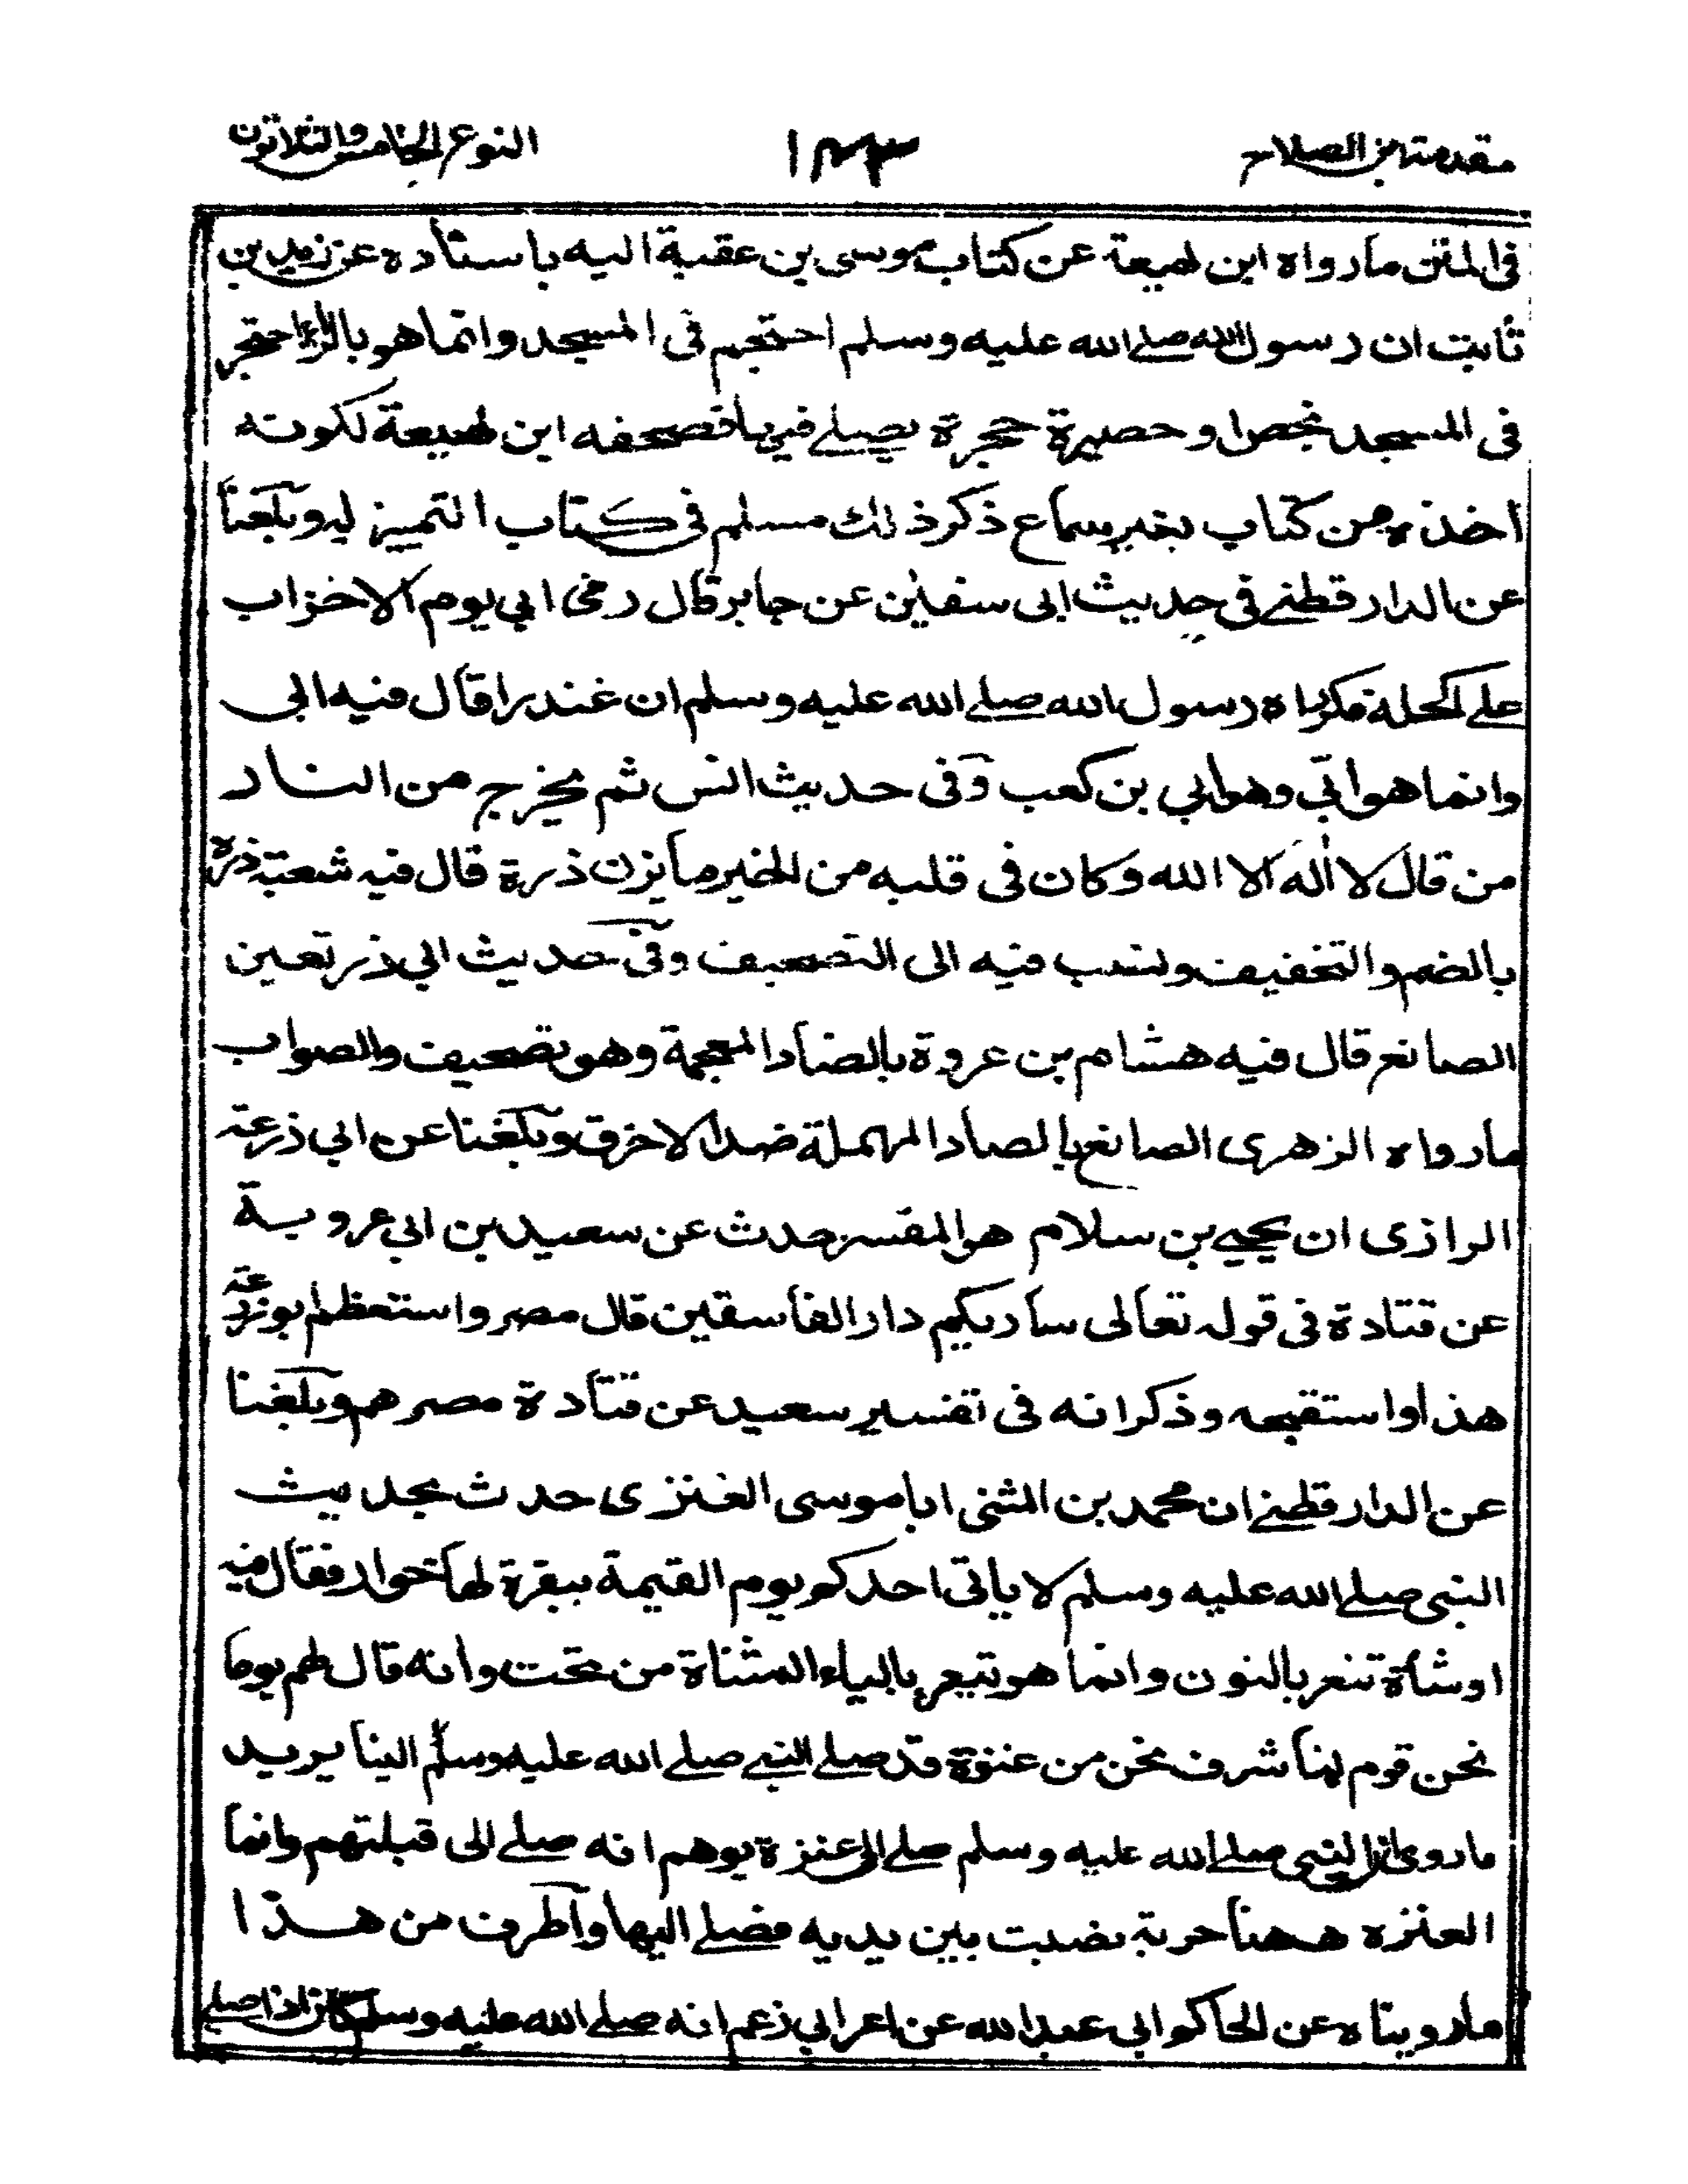 مقدمة ابن الصلاح ١٤٣ النوع الخامس والثلاثون
فى المتن ما رواه ابن لهيعة عن كتاب موسى بن عقبة اليه باسناده عن زيد بن
ثابت ان رسول الله صلى الله عليه وسلم احتجم فى المسجد وانما هو بالراء احتجر
فى المسجد بخص او حصيرة حجرة يصلى فيها فصحفه ابن لهيعة لكونه
اخذه من كتاب بغير سماع ذكر ذلك مسلم فى كتاب التمييز له وبلغنا
عن الدارقطنى فى حديث ابى سفين عن جابر قال رمى ابي يوم الاحزاب
على اكحله فكواه رسول الله صلى الله عليه وسلم ان غندرا قال فيه ابي
وانما هو ابي وهو ابي بن كعب وفى حديث انس ثم يخرج من النار
من قال لا اله الا الله وكان فى قلبه من الخير ما يزن ذرة قال فيه شعبة ذرة
بالضم والتخفيف ونسب فيه الى التصحيف وفى حديث ابي ذر تعين
الصانع قال فيه هشام بن عروة بالضاد المعجمة وهو تصحيف والصواب
ما رواه الزهرى الصانع بالصاد المهملة ضد الاخرق وبلغنا عن ابي زرعة
الرازى ان يحيى بن سلام هو المفسر حدث عن سعيد بن ابي عروبة
عن قتادة فى قوله تعالى ساريكم دار الفاسقين قال مصر واستعظم ابو زرعة
هذا واستقبحه وذكر انه فى تفسير سعيد عن قتادة مصيرهم وبلغنا
عن الدارقطنى ان محمد بن المثنى ابا موسى العنزى حدث بحديث
النبى صلى الله عليه وسلم لا ياتى احدكم يوم القيمة ببقرة لها خوار فقال فيه
او شاة تنعر بالنون وانما هو تيعر بالياء المثناة من تحت وانه قال لهم يوما
نحن قوم لنا شرف نحن من عنزة قد صلى النبى صلى الله عليه وسلم الينا يريد
ما روى ان النبى صلى الله عليه وسلم صلى الى عنزة يوهم انه صلى الى قبلتهم وانما
العنزه ههنا حربة نصبت بين يديه فصلى اليها واطرف من هذا
ما رويناه عن الحاكم ابي عبد الله عن اعرابي زعم انه صلى الله عليه وسلم كان اذا صلى